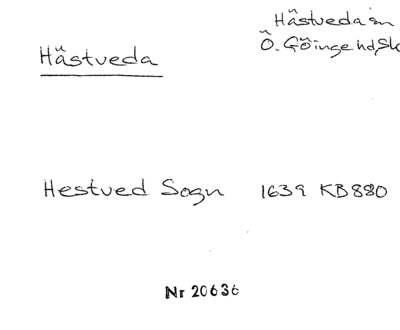 Hästveda sn
Hästveda
Ö. Göinge hd, Sk
Hestved Sogn 1639 KB 880
Nr 20636